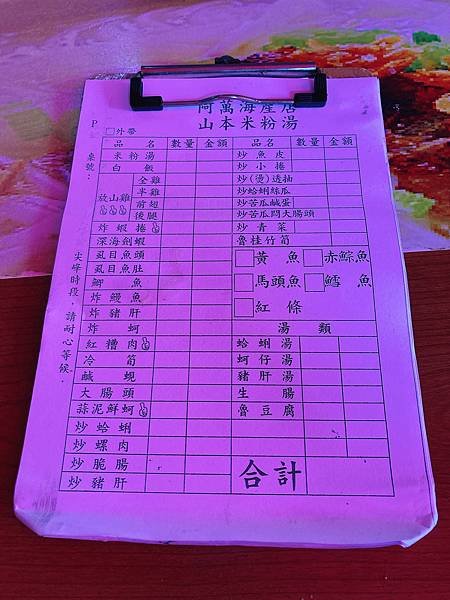 阿萬海產店
山本米粉湯
P
□外帶
桌號：
尖峰時段，請耐心等候．
品名 數量 金額
米粉湯
白飯
放山雞
全雞
半雞
前翅
後腿
炸蝦捲
深海劍蝦
虱目魚頭
虱目魚肚
鯽魚
炸鰻魚
炸豬肝
炸蚵
紅糟肉
冷筍
鹹蜆
大腸頭
蒜泥鮮蚵
炒蛤蜊
炒螺肉
炒脆腸
炒豬肝
品名 數量 金額
炒魚皮
炒小捲
炒(燙)透抽
炒蛤蜊絲瓜
炒苦瓜鹹蛋
炒苦瓜悶大腸頭
炒青菜
魯桂竹筍
□黃魚 □赤鯮魚
□馬頭魚 □鱈魚
□紅條
湯類
蛤蜊湯
蚵仔湯
豬肝湯
生腸
魯豆腐
合計